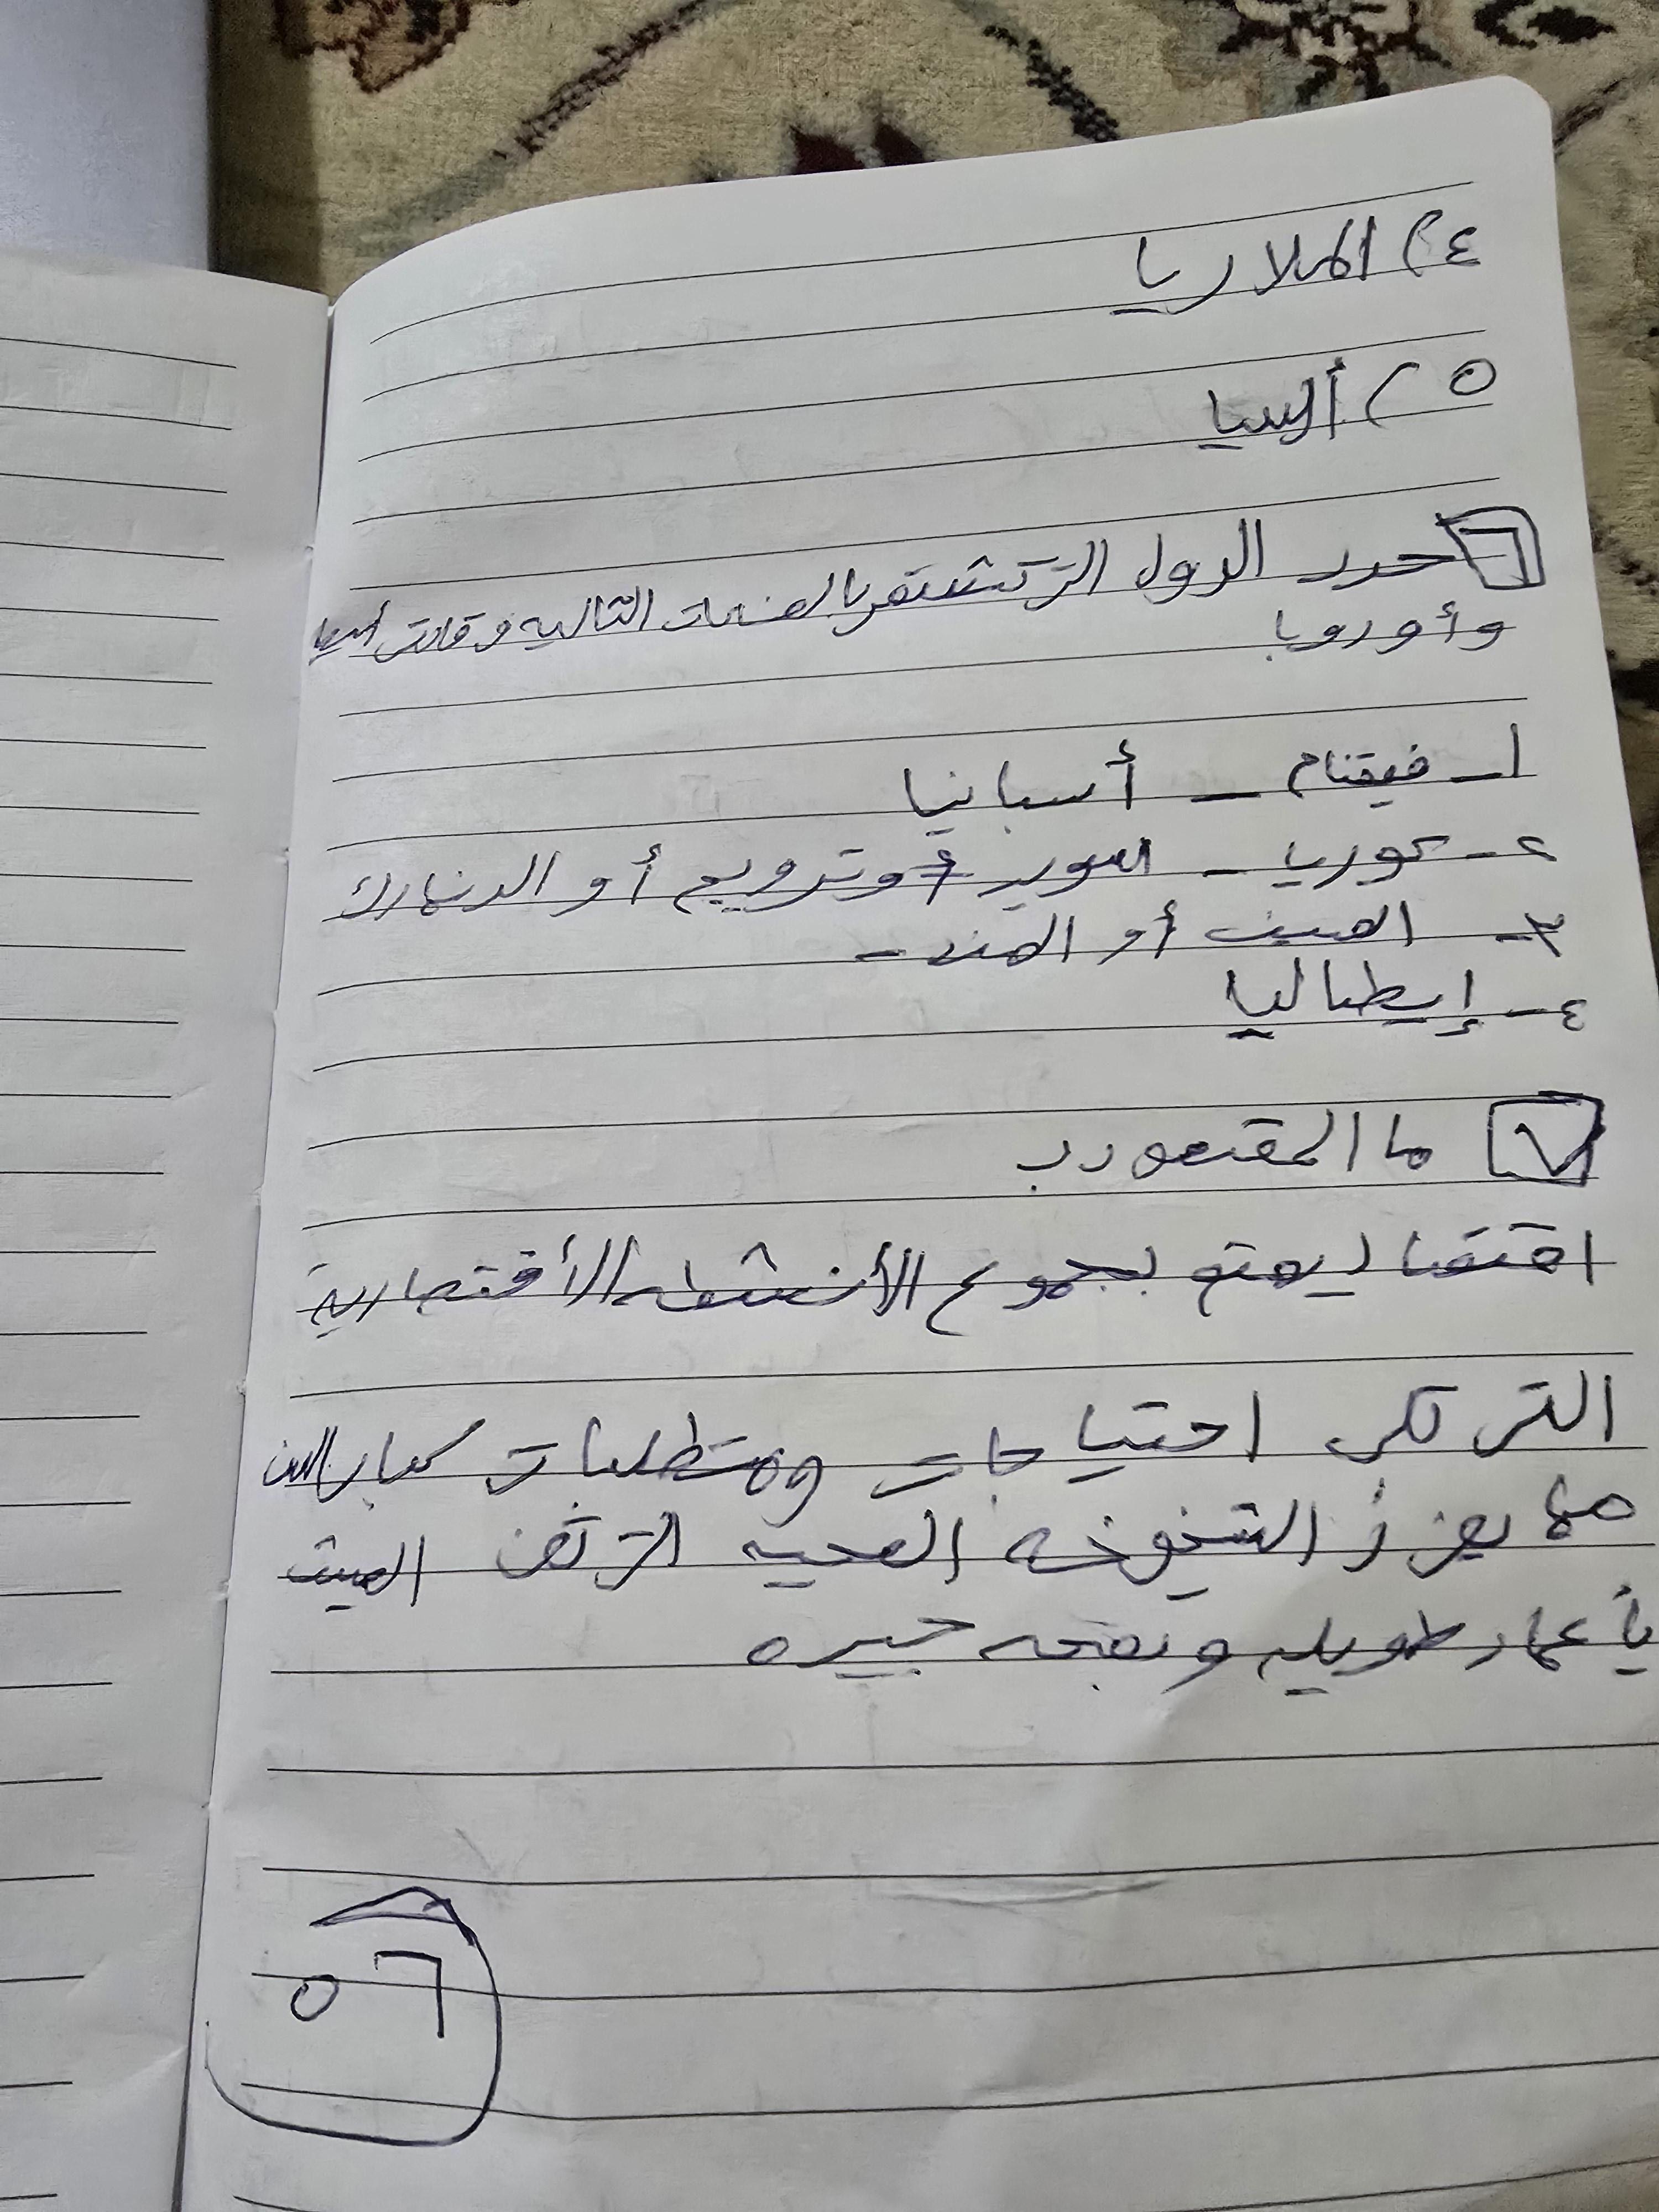 ٤) الملاريا
٥) ألسيا
٦ حدد الدول التي تشتهر بالصناعات التالية و قارتي أسيا
وأوروبا
١- فيتنام - أسبانيا
٢- كوريا - السويد أو ترويج أو الدنمارك
٣- الصين أو الهند -
٤- إيطاليا
٧ ما المقصود ب
اقتصاد يهتم بجموع الأنشطه الأقتصادية
التي تلبي احتياجات ومتطلبات كبار السن
مما يعزز الشيخوخه الصحيه التي تعني العيش
بأعمار طويله وبصحه جيده
٥٦